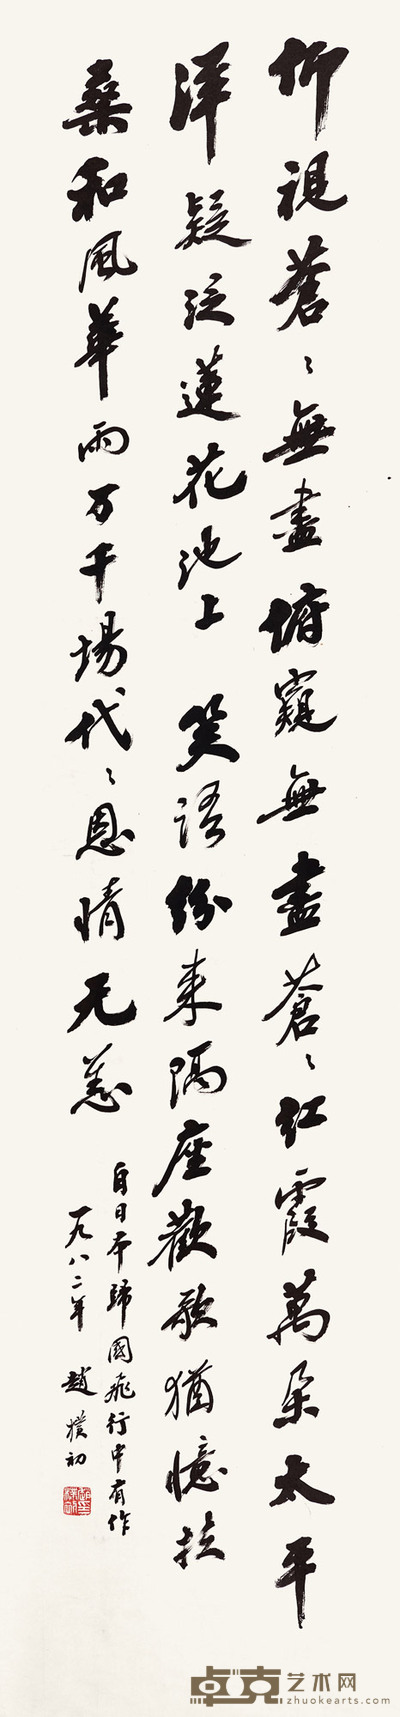 仰視蒼〻無盡俯窺無盡蒼〻紅霞萬朵太平
洋疑泛蓮花池上 笑語紛来隔座歡歌猶憶扶
桑和風華雨万千場代〻恩情无恙
自日本歸國飛行中有作
一九八二年 趙樸初
卓克艺术网
zhuokearts.com